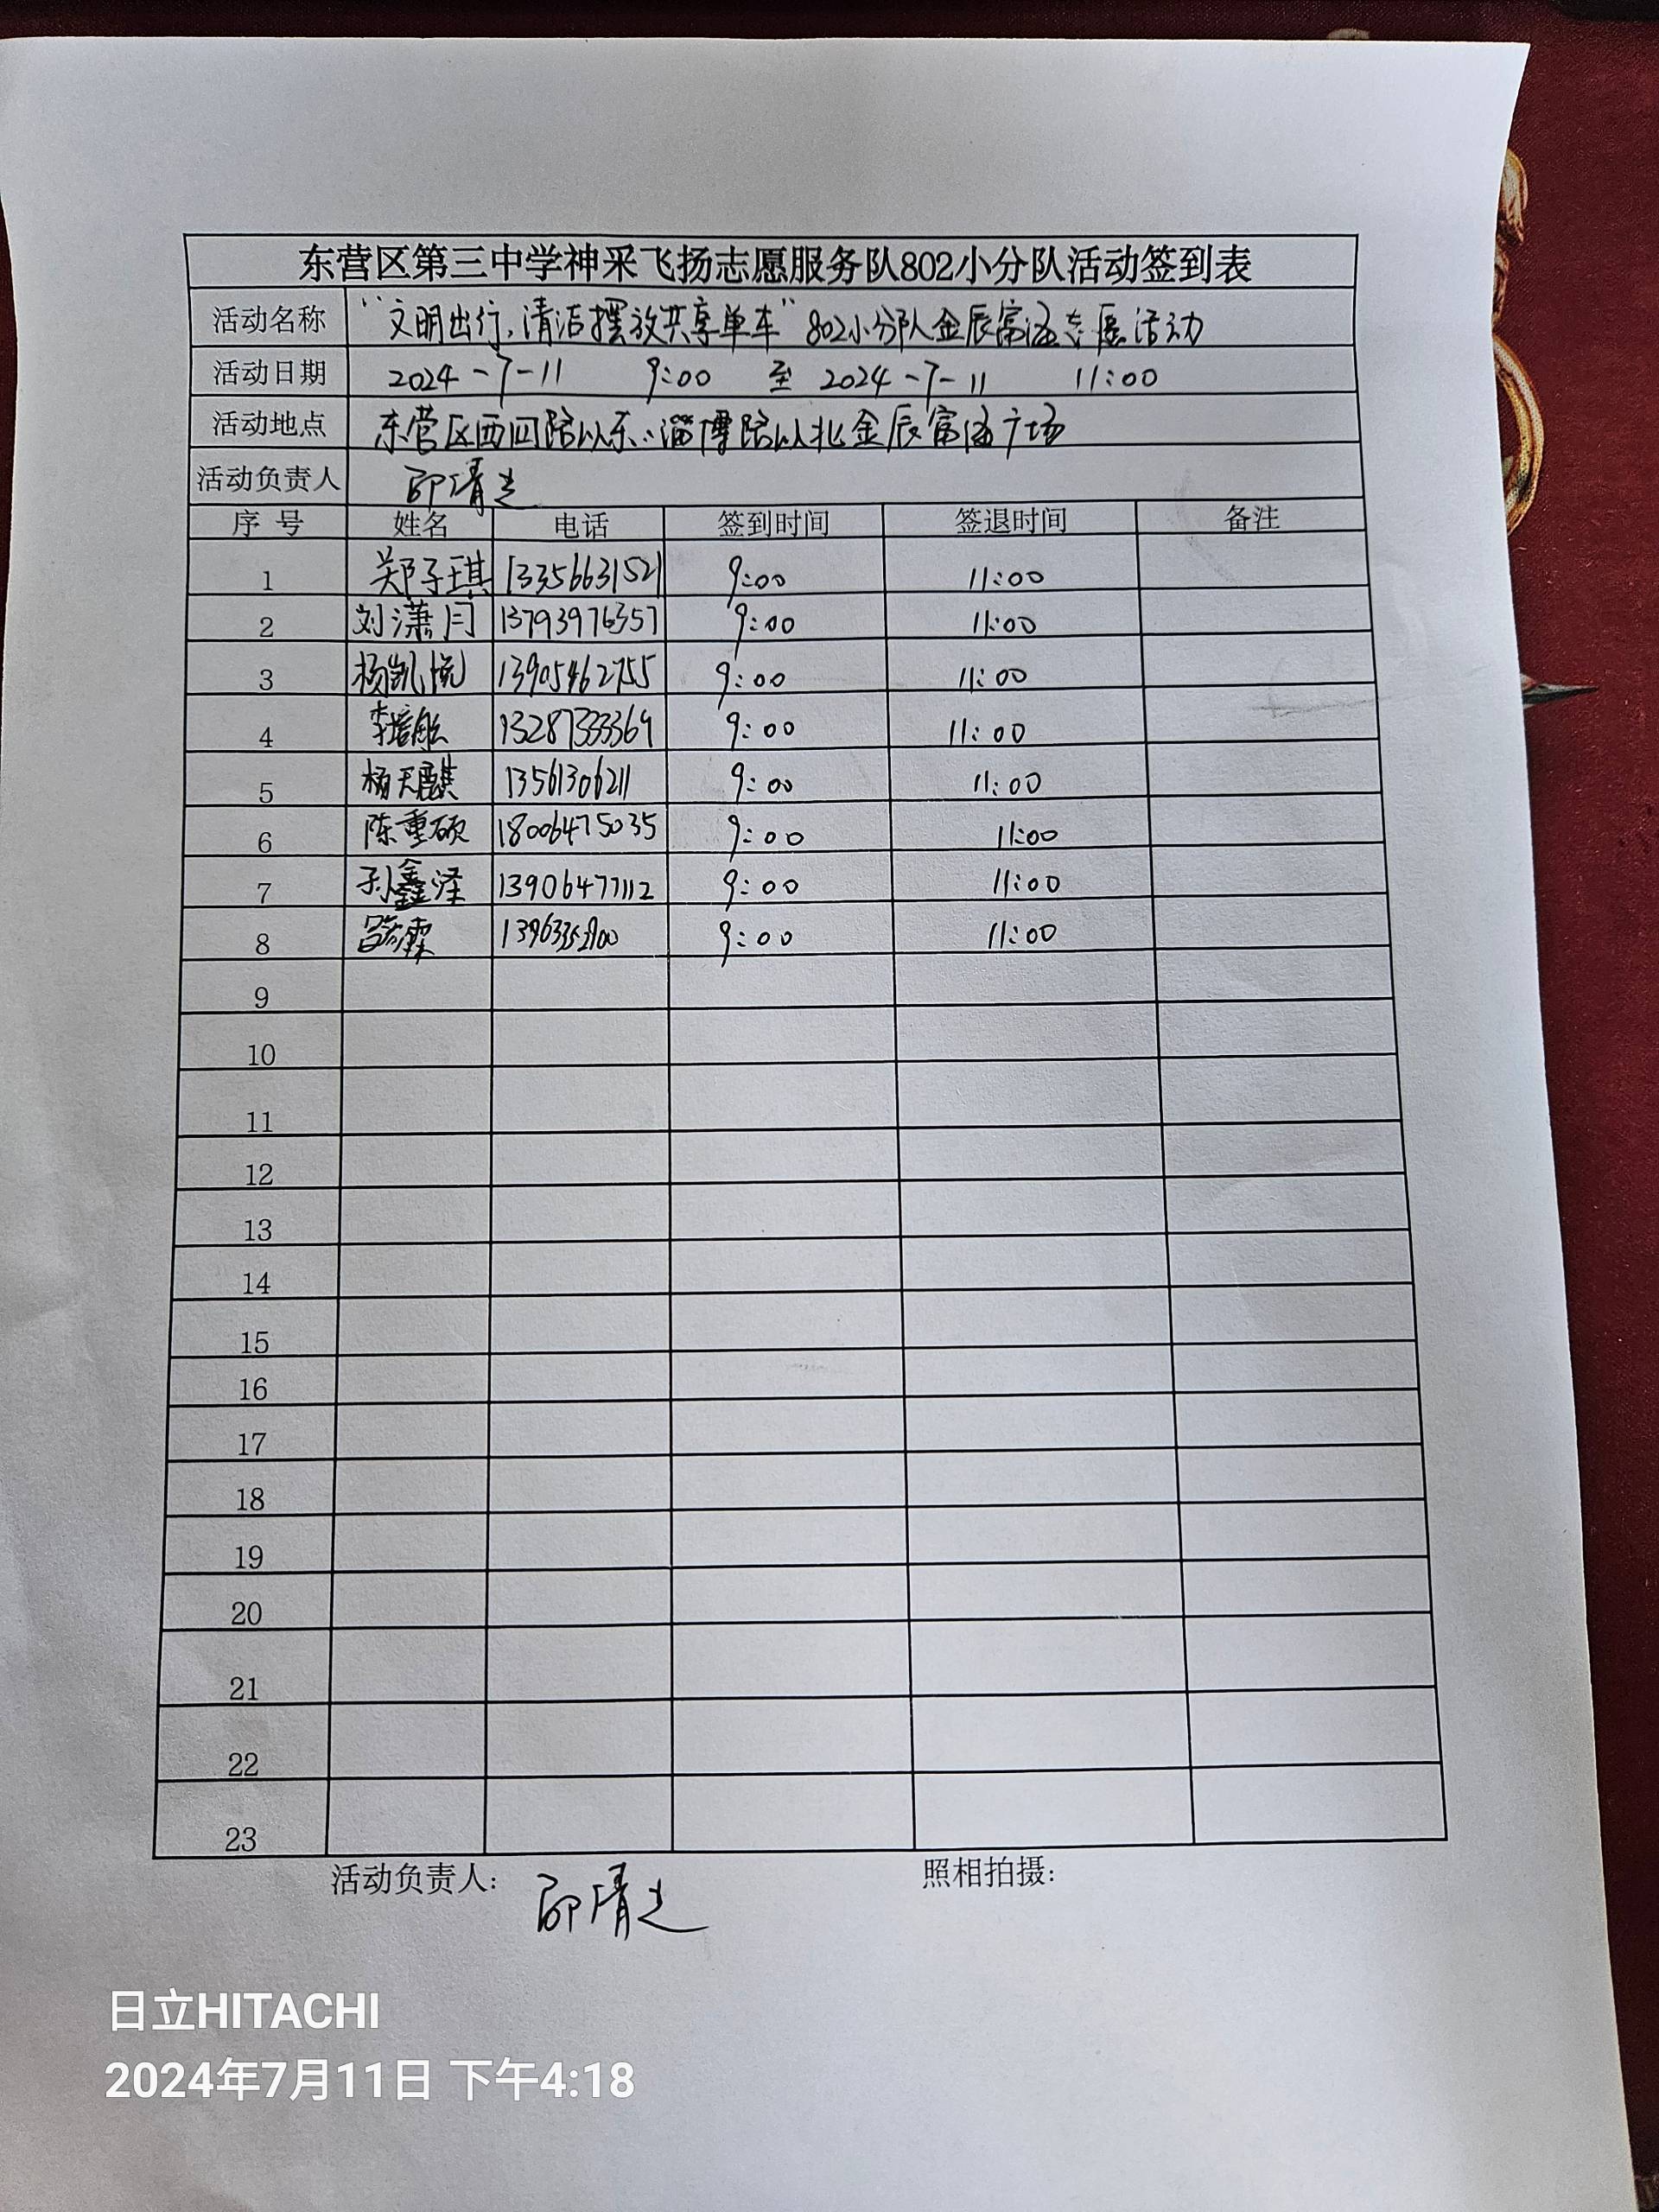 东营区第三中学神采飞扬志愿服务队802小分队活动签到表
活动名称 “文明出行,清洁摆放共享单车”802小分队金辰富海志愿活动
活动日期 2024-7-11 9:00 至 2024-7-11 11:00
活动地点 东营区西四路以东、淄博路以北金辰富海广场
活动负责人 邵清
序 号 姓名 电话 签到时间 签退时间 备注
1 郑子琪 13356631521 9:00 11:00
2 刘潇月 13793976357 9:00 11:00
3 杨凯悦 13905462755 9:00 11:00
4 李 13287333369 9:00 11:00
5 杨天麒 13561306211 9:00 11:00
6 陈重硕 18006475035 9:00 11:00
7 孙鑫泽 13906477112 9:00 11:00
8 9:00 11:00
9
10
11
12
13
14
15
16
17
18
19
20
21
22
23
活动负责人: 邵清 照相拍摄:
日立HITACHI
2024年7月11日 下午4:18